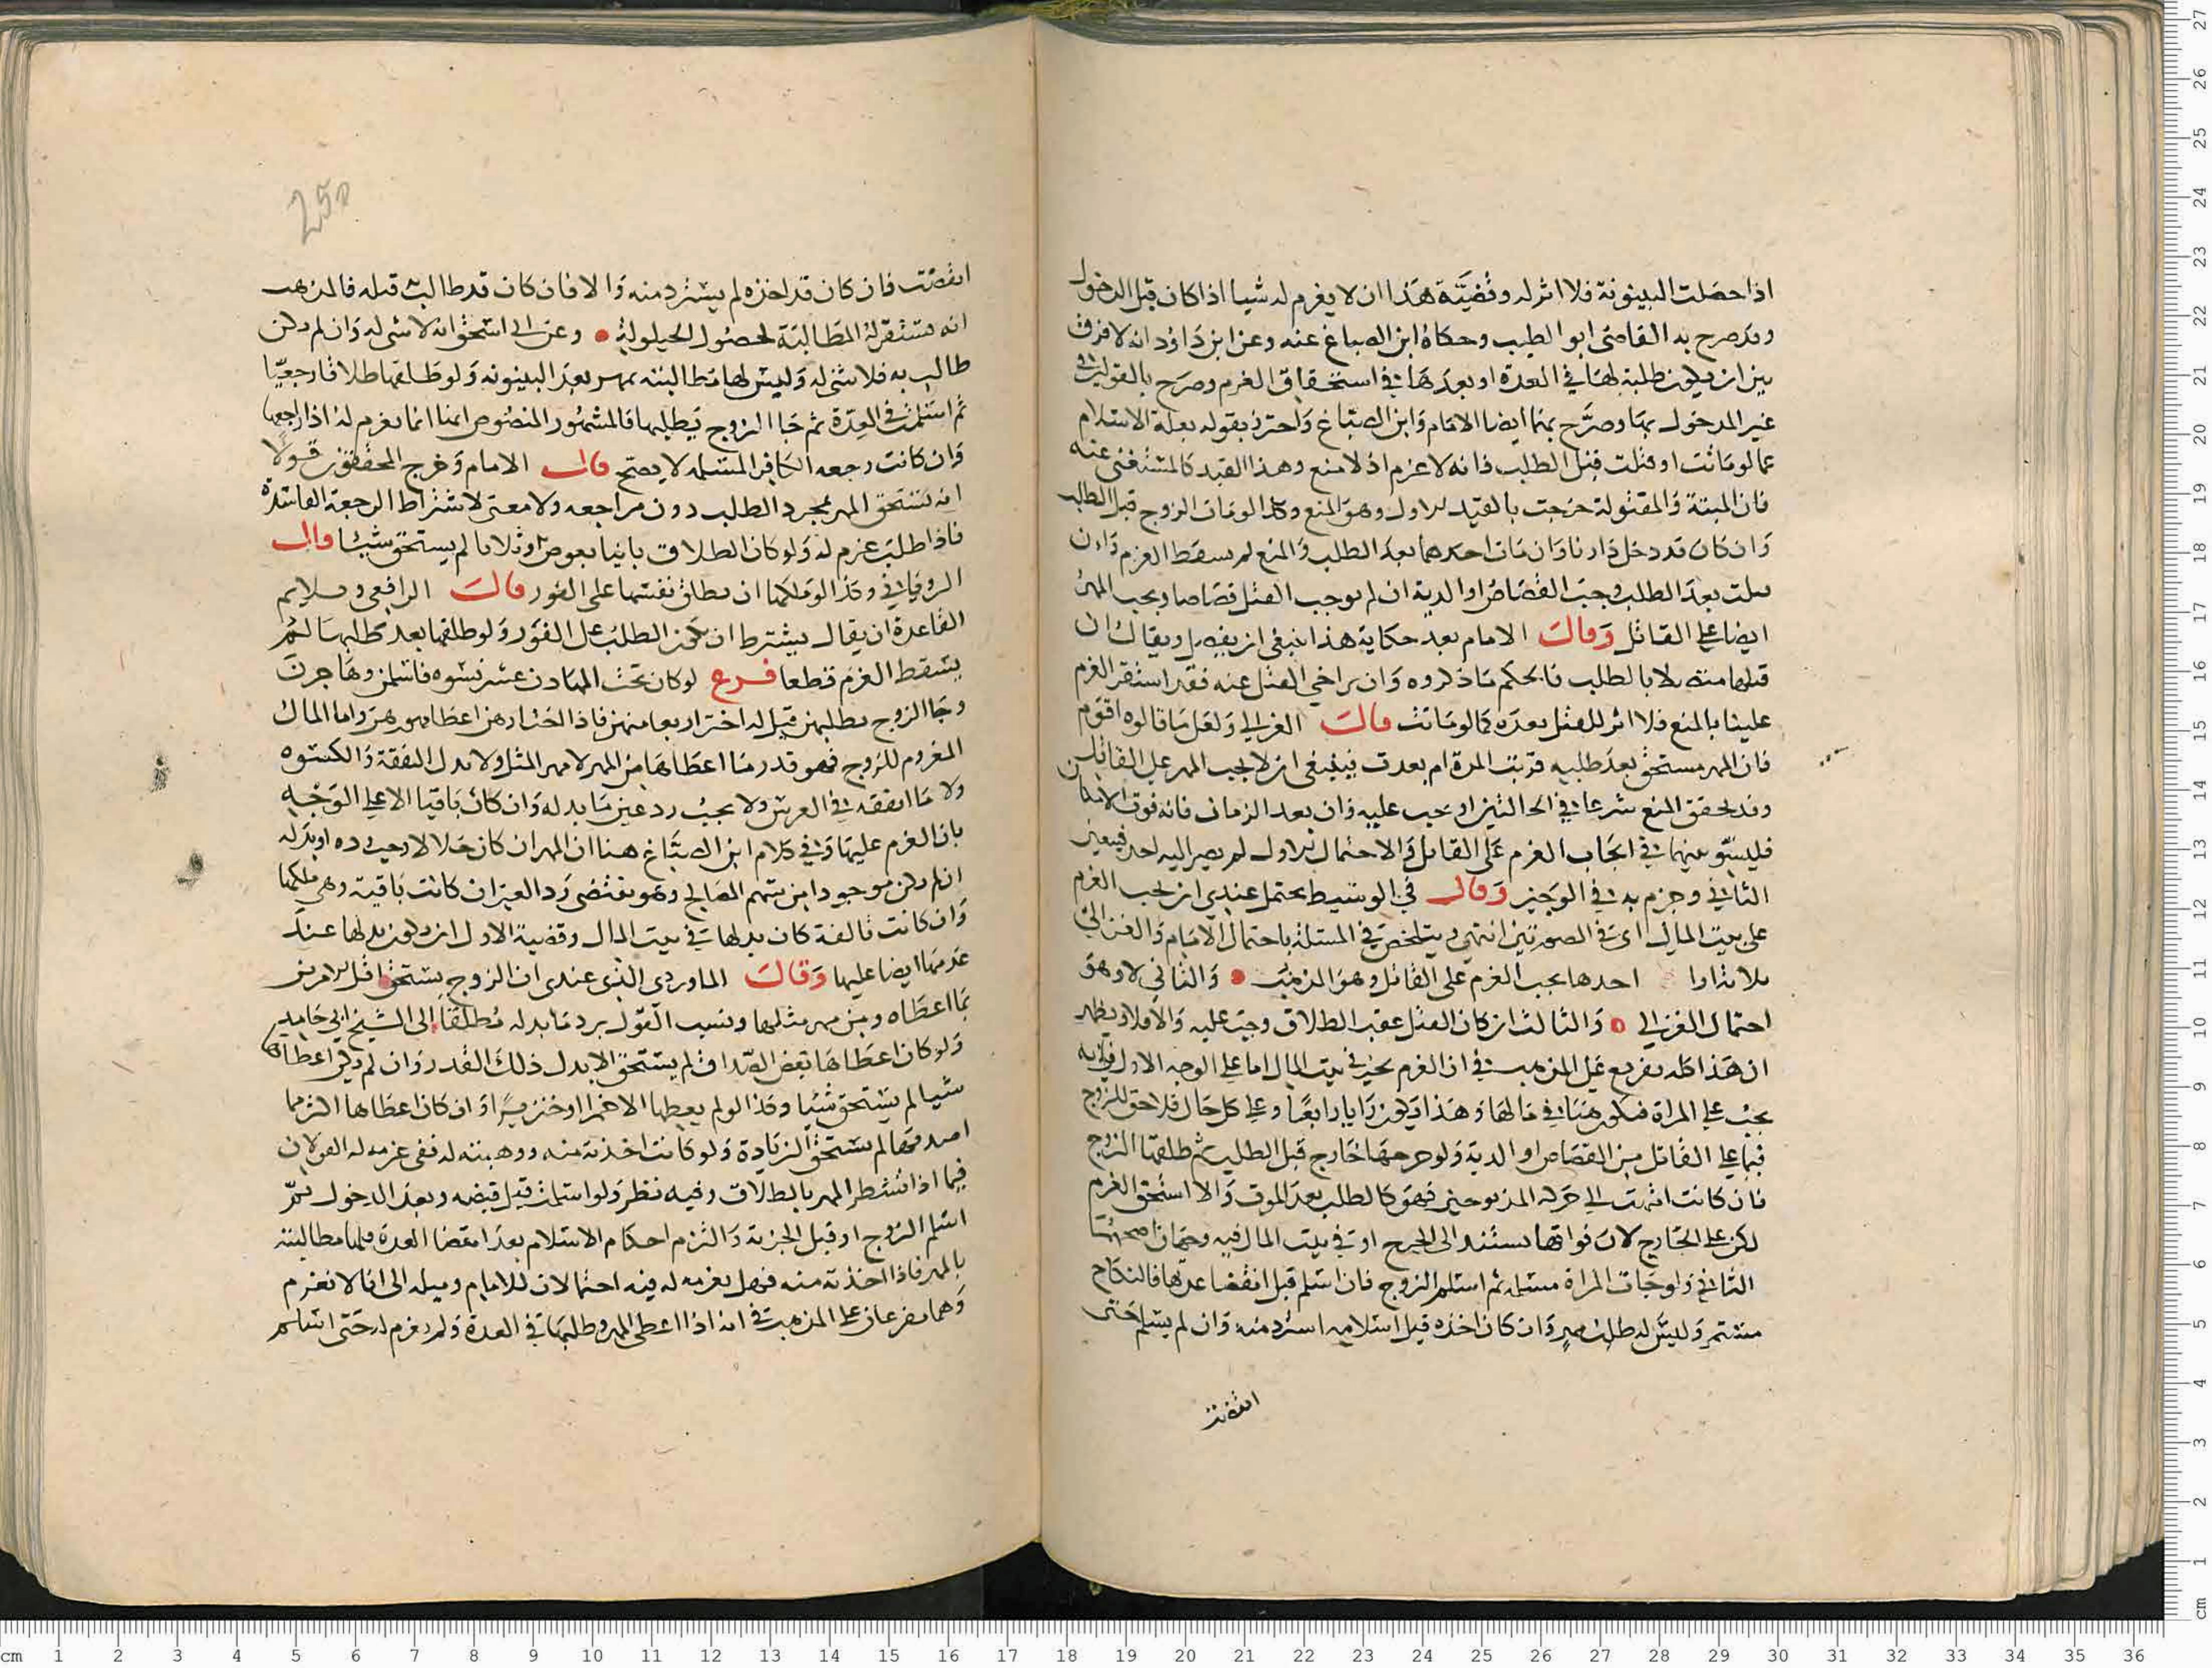 اذا حصلت البينونة فلا اثر له وقضيّة هذا ان لا يغرم له شيا اذا كان قبل الدخول
وقد صرح به القاضي ابو الطيب وحكاه ابن الصباغ عنه وعن ابن داؤد انه لا فرق
بين ان يكون طلبه لها في العدة او بعدها في استحقاق الغرم وصرح بالقولين في
غير المدخول بها وصرّح بهما ايضا الامام وابن الصباغ واحترز بقوله بعلة الاسلام
عما لو ماتت او قتلت قبل الطلب فانه لا غرم اذ لا منع وهذا القيد كالمستغنى عنه
فان الميتة والمقتولة خرجت بالقيد الاول وهو المنع وكذا لو مات الزوج قبل الطلب
وان كان قد دخل دارنا وان مات احدهما بعد الطلب والمنع لم يسقط الغرم وان
قتلت بعد الطلب وجب القصاص او الدية ان لم يوجب القتل قصاصا ويجب المهر
ايضا على القاتل وقال الامام بعد حكاية هذا ينبغي ان يفصل ويقال ان
قتلها متصلا بالطلب فالحكم ما ذكروه وان تراخى القتل عنه فقد استقر الغرم
علينا بالمنع فلا اثر للقتل بعده كما لو ماتت قال الغزالي ولعل ما قالوه اقوم
فان المهر مستحق بعد طلبه قربت المدة ام بعدت فينبغي ان لا يجب المهر على القاتل
وقد تحقق المنع شرعا في الحالتين او يجب عليه وان بعد الزمان فانه فوت الامكان
فليسوّ بينهما في ايجاب الغرم على القاتل والاحتمال الاول لم يصر اليه احد فيتعين
الثاني وجزم به في الوجيز وقال في الوسيط يحتمل عندي ان يجب الغرم
على بيت المال اى في الصورتين انتهى ويتلخص في المسئلة باحتمال الامام والغزالي
ثلاثة اوا احدها يجب الغرم على القاتل وهو المذهب والثاني لا وهو
احتمال الغزالي والثالث ان كان القتل عقب الطلاق وجب عليه والا فلا ويظهر
ان هذا كله تفريع على المذهب في ان الغرم يجب في بيت المال اما على الوجه الاول فانه
يجب على المراة فيكون هنا في مالها وهذا يكون رايا رابعا وعلى كل حال فلا حق للزوج
فيما على القاتل من القصاص او الدية ولو جرحها خارج قبل الطلب ثم طلقها الزوج
فان كانت انتهت الى حركة المذبوحين فهو كالطلب بعد الموت والا استحق الغرم
لكن على الجارح لان فواتها يستند الى الجرح او في بيت المال فيه وجهان اصحهما
الثاني ولو جات المراة مسلمة ثم اسلم الزوج فان اسلم قبل انقضا عدتها فالنكاح
مستمر وليس له طلب مهر وان كان اخذه قبل اسلامه استرد منه وان لم يسلم حتى
انقضت
انقضت فان كان قد اخذه لم يسترد منه والا فان كان قد طالبت قبله فالمذهب
انه تستقر له المطالبة لحصول الحيلولة وعن ابي اسحق انه لا شي له وان لم يكن
طالب به فلا شي له وليس لها مطالبته بمهر بعد البينونة ولو طلقها طلاقا رجعيّا
ثم اسلمت في العدّة ثم جا الزوج يطلبها فالمشهور المنصوص هنا انما يغرم له اذا راجعها
وان كانت رجعه الكافر المسلمه لا يصح قال الامام وخرج المحققون قولا
انه يستحق المهر بمجرد الطلب دون مراجعه ولا معنى لاشتراط الرجعة الفاسدة
فاذا طلب غرم له ولو كان الطلاق باينا بعوض او ثلاثا لم يستحق شيئا قال
الروياني وكذا لو ملكها ان يطلق نفسها على الفور قال الرافعي وملايم
القاعدة ان يقال يشترط ان يكون الطلب على الفور ولو طلقها بعد طلبها لم
يسقط الغرم قطعا فرع لو كان تحت المهادن عشر نسوه فاسلمن وهاجرن
وجا الزوج يطلبهن قيل له اختر اربعا منهن فاذا اختارهن اعطا مهورهن واما المال
المغروم للزوج فهو قدر ما اعطاها من المهر لا مهر المثل ولا بدل النفقة والكسوه
ولا ما انفقه في العرس ولا يجب رد عين ما بذله وان كان باقيا الا على الوجه
بان الغرم عليها وفي كلام ابن الصباغ هنا ان المهر ان كان حلالا وجب رده او بدله
ان لم يكن موجودا من سهم المصالح وهو يقتضي رد العين ان كانت باقية وهي ملكها
وان كانت تالفة كان بدلها في بيت المال وقضية الاول ان يكون بدلها عند
عدمها ايضا عليها وقال الماوردي الذي عندي ان الزوج يستحق اقل الامرين
مما اعطاه ومن مهر مثلها ونسب القول برد ما بذله مطلقا الى الشيخ ابي حامد
ولو كان اعطاها بعض الصداق لم يستحق الا بدل ذلك القدر وان لم يكن اعطاها
شيا لم يستحق شيئا وكذا لو لم يعطها الا خمرا او خنزيرا وان كان اعطاها اكثر مما
اصدقها لم يستحق الزيادة ولو كانت اخذته منه ووهبته له ففي غرمه له القولان
فيما اذا تشطر المهر بالطلاق وفيه نظر ولو اسلمت قبل قبضه وبعد الدخول ثمّ
اسلم الزوج او قبل الجزية والتزم احكام الاسلام بعد انقضا العدة فلها مطالبته
بالمهر فاذا اخذته منه فهل يغرمه له فيه احتمالان للامام وميله الى انا لا نغرم
وهما مفرعان على المذهب في انه اذا اعطى المهر وطلبها في العدة ولم يغرم له حتى اسلم